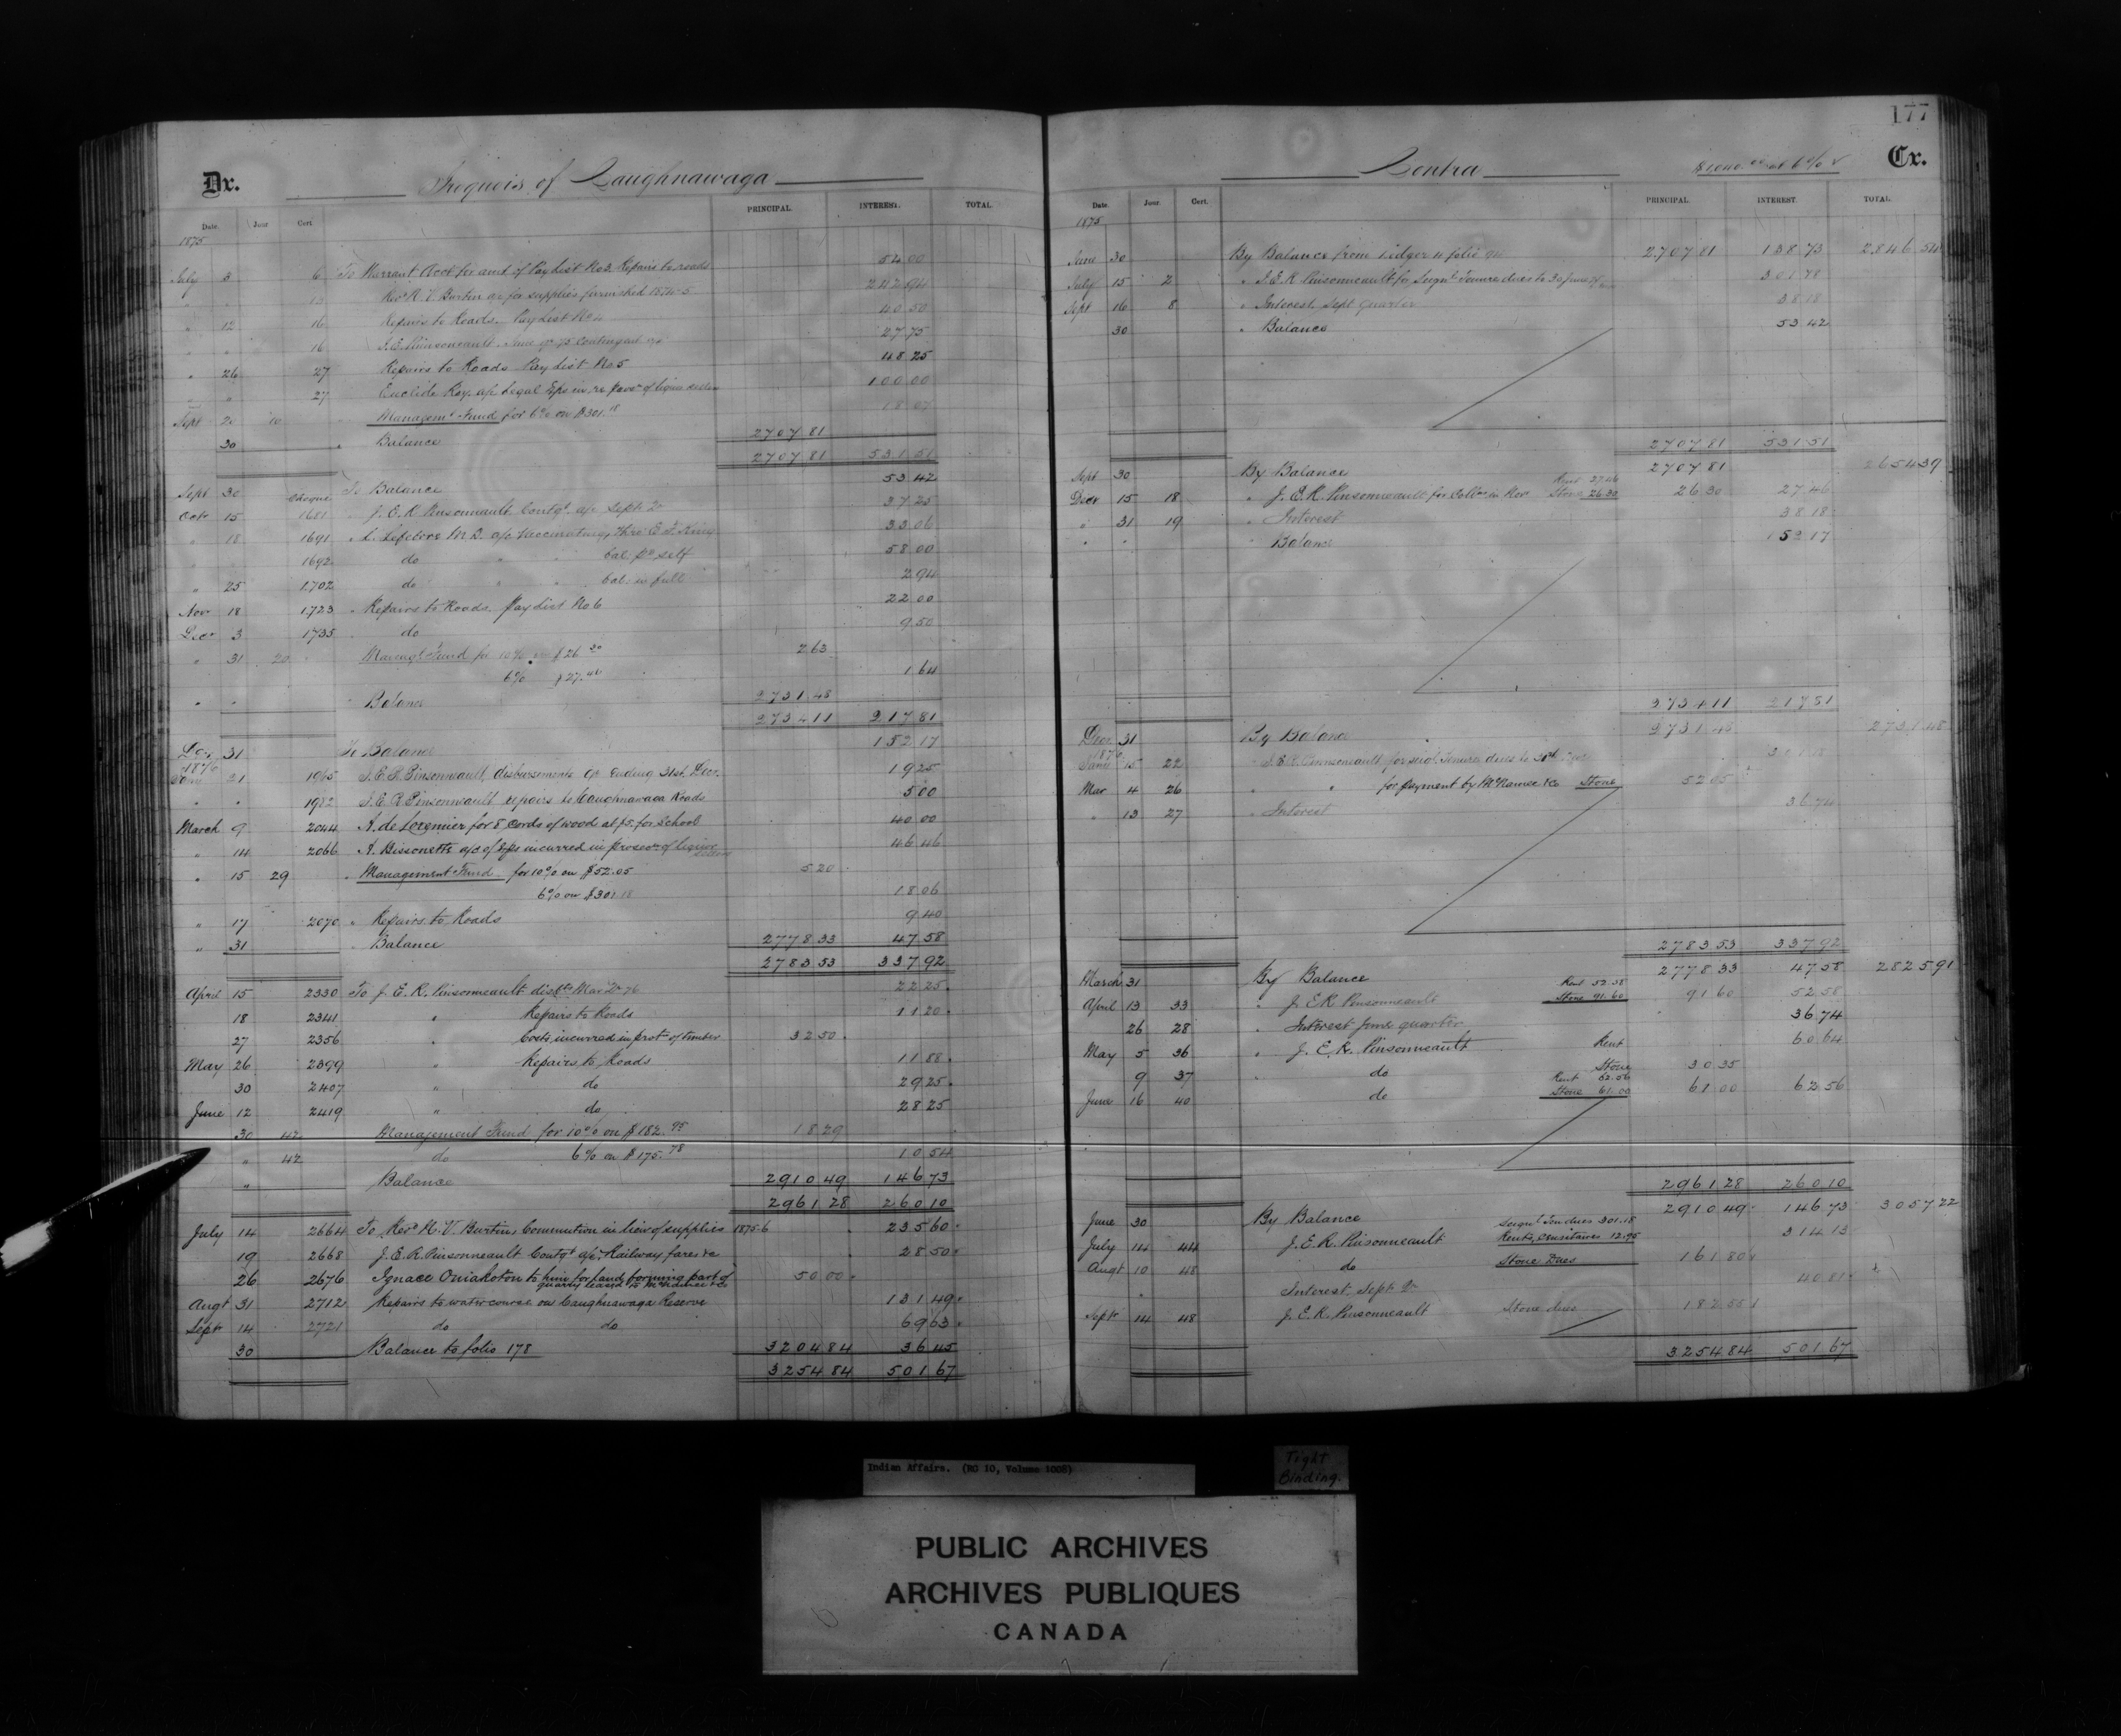 177
Dr. Iroquois of Caughnawaga
Date. Jour Cert. PRINCIPAL. INTEREST. TOTAL.
1875
July 3 6 To Warrant Acct for amt of Pay List No 3. Repairs to roads 52 00
" 13 Revd N. V. Burtin a/c for supplies furnished 1874-5 242 94
" 12 16 Repairs to Roads. Pay List No 40 50
" " 16 J. E. Pinsonneault June qr 75 Contingent 27 75
" 26 27 Repairs to Roads Pay List No 5 48 25
" " 27 Euclide Roy. a/c Legal Exps in re prosn of liquor sellers 100 00
Sept 20 10 Managemt Fund for 6% on $301.18 18 07
30 " Balance 2707 81
2707 81 531 51
Sept 30 Cheque To Balance 53 42
Octr 15 1681 " J. E. R. Pinsonneault Contgt a/c Septr Qr 37 25
" 18 1691 " L. Lefebvre M. D. a/c Vaccinating, thro' E. F. King 33 06
1692 do " " bal. pd self 58 00
" 25 1702 do " " bal: in full 2 94
Novr 18 1723 " Repairs to Roads. Pay List No 6 22 00
Decr 3 1735 " do 9 50
" 31 20 Managt Fund for 10% on $26.30 2 63
6% $27.46 1 64
" " " Balance 2731 48
2734 11 217 81
Dec. 31 To Balance 152 17
1876
Jany 21 1965 " J. E. R. Pinsonneault, disbursements qr ending 31st Decr. 19 25
" " 1982 J. E. R. Pinsonneault repairs to Caughnawaga Roads 5 00
March 9 2044 A. de Lorimier for 8 cords of wood at $5. for School 40 00
" 14 2066 A. Bissonette a/c of Exps incurred in prosecn of liquor sellers 46 46
" 15 29 " Management Fund for 10% on $52.05 5 20
6% on $301.18 18 06
" 17 2070 " Repairs to Roads 9 40
" 31 " Balance 2778 33 47 58
2783 53 337 92
April 15 2330 To J. E. R. Pinsonneault disbts Mar Qr 76 22 25
18 2341 " Repairs to Roads 11 20
27 2356 " Costs incurred in protn of timber 32 50
May 26 2399 " Repairs to Roads 11 88
30 2407 " do 29 25
June 12 2419 " do 28 25
30 42 Management Fund for 10% on $182.95 18 29
" 42 do 6% on $175.78 10 54
" Balance 2910 49 146 73
2961 28 260 10
July 14 2664 To Revd N. V. Burtin, Commution in lieu of supplies 1875-6 235 60
19 2668 J. E. R. Pinsonneault Contgt a/c, Railway fares &c 28 50
26 2676 Ignace Oniakoton to him for land forming part of 50 00
quarry leased to McNamee & Co
Augt 31 2712 Repairs to water course on Caughnawaga Reserve 131 49
Sept 14 2721 do do 69 63
30 Balance to folio 178 3204 84 36 45
3254 84 501 67
Contra Cr.
Date. Jour. Cert. PRINCIPAL. INTEREST. TOTAL.
1875
June 30 By Balance from Ledger folio 2707 81 138 73 2846 54
July 15 2 " J. E. R. Pinsonneault for Seignl Tenure dues to 30 June 301 18
Sept 16 8 " Interest Sept quarter 38 18
30 " Balance 53 42
2707 81 531 51
Sept 30 By Balance 2707 81 2654 39
Decr 15 18 " J. E. R. Pinsonneault for Collns in Novr Rent 27.46 Stone 26.30 26 30 27 46
" 31 19 " Interest 38 18
" " Balance 152 17
2734 11 217 81
Decr. 31 By Balance 2731 48 2731 48
1876
Jany 15 22 " J. E. R. Pinsonneault for seigl. Tenure dues to 301
Mar 4 26 " " for payment by McNamee & Co Stone 52 05
" 13 27 " Interest 36 74
2783 53 337 92
March 31 By Balance 2778 33 47 58 2825 91
April 13 33 " J. E. R. Pinsonneault Rent 52.58 Stone 91.60 91 60 52 58
26 28 " Interest June quarter 36 74
May 5 36 " J. E. R. Pinsonneault Rent 60 64
9 37 " do Stone 30 35
June 16 40 do Rent 62.56 Stone 61.00 61 00 62 56
2961 28 260 10
June 30 By Balance 2910 49 146 73 3057 22
July 14 44 J. E. R. Pinsonneault Seignl Ten dues 301.18 Rents, Censitaires 12.95 314 13
Augt 10 48 do Stone Dues 161 80
" Interest Sept Qr 40 81
Septr 14 48 J. E. R. Pinsonneault Stone dues 182 55
3254 84 501 67
Indian Affairs. (RG 10, Volume 1008)
Tight
Binding.
PUBLIC ARCHIVES
ARCHIVES PUBLIQUES
CANADA